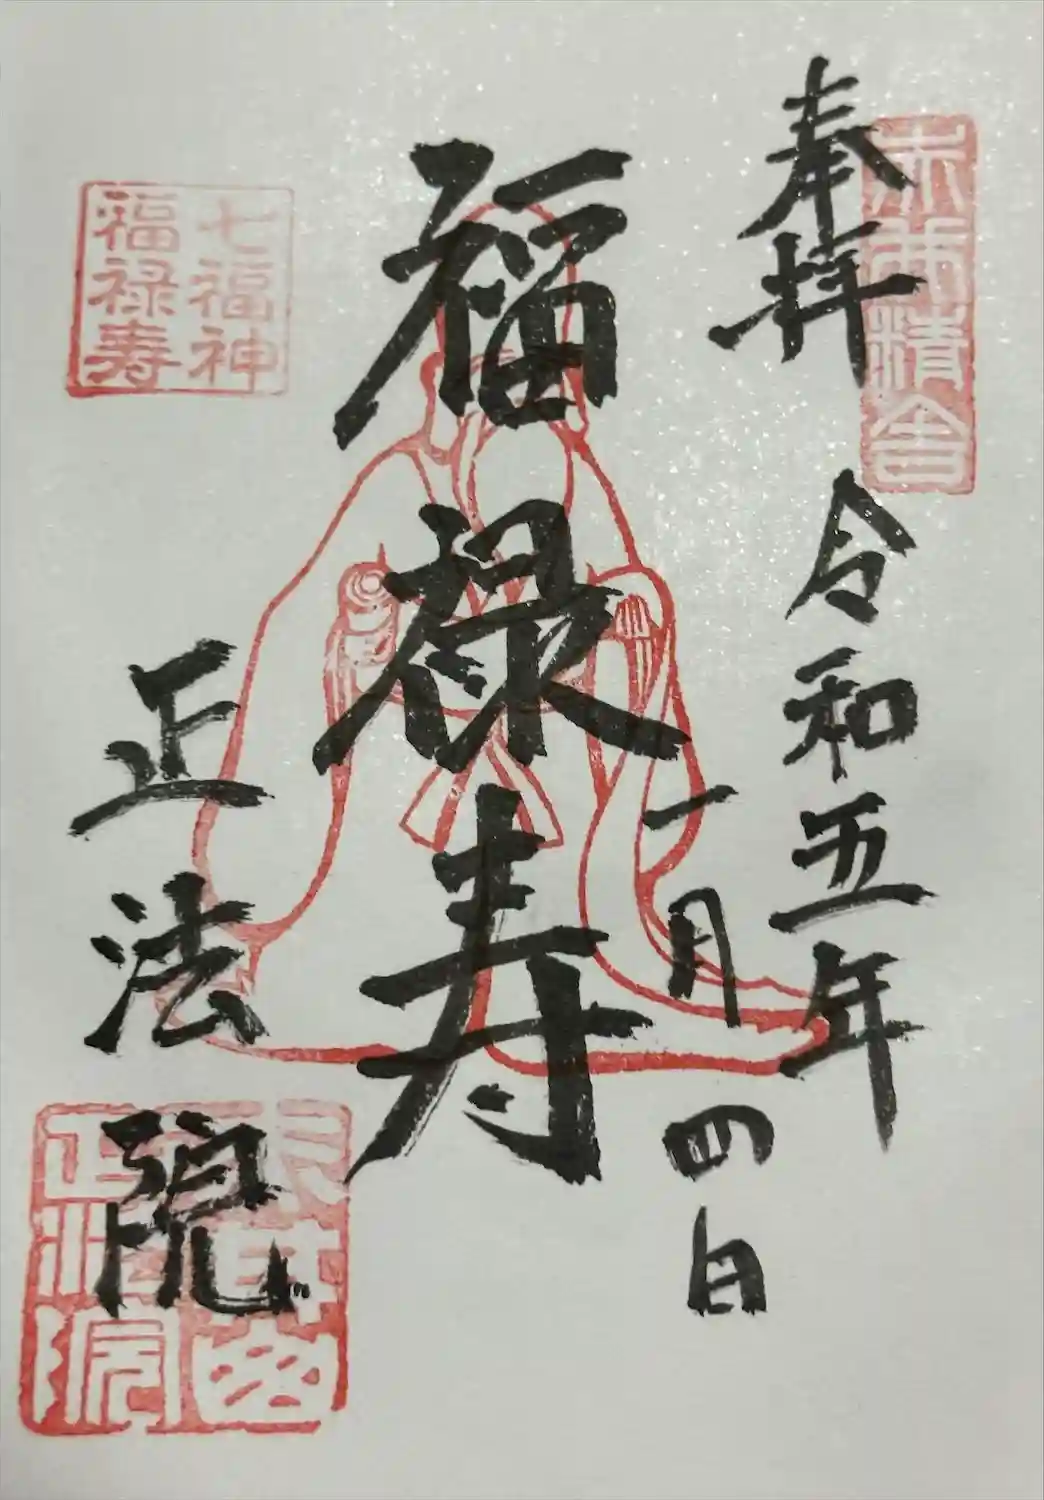 奉拝
精舎
令和五年
一月四日
福禄寿
七福神
福禄寿
正法院
正法院